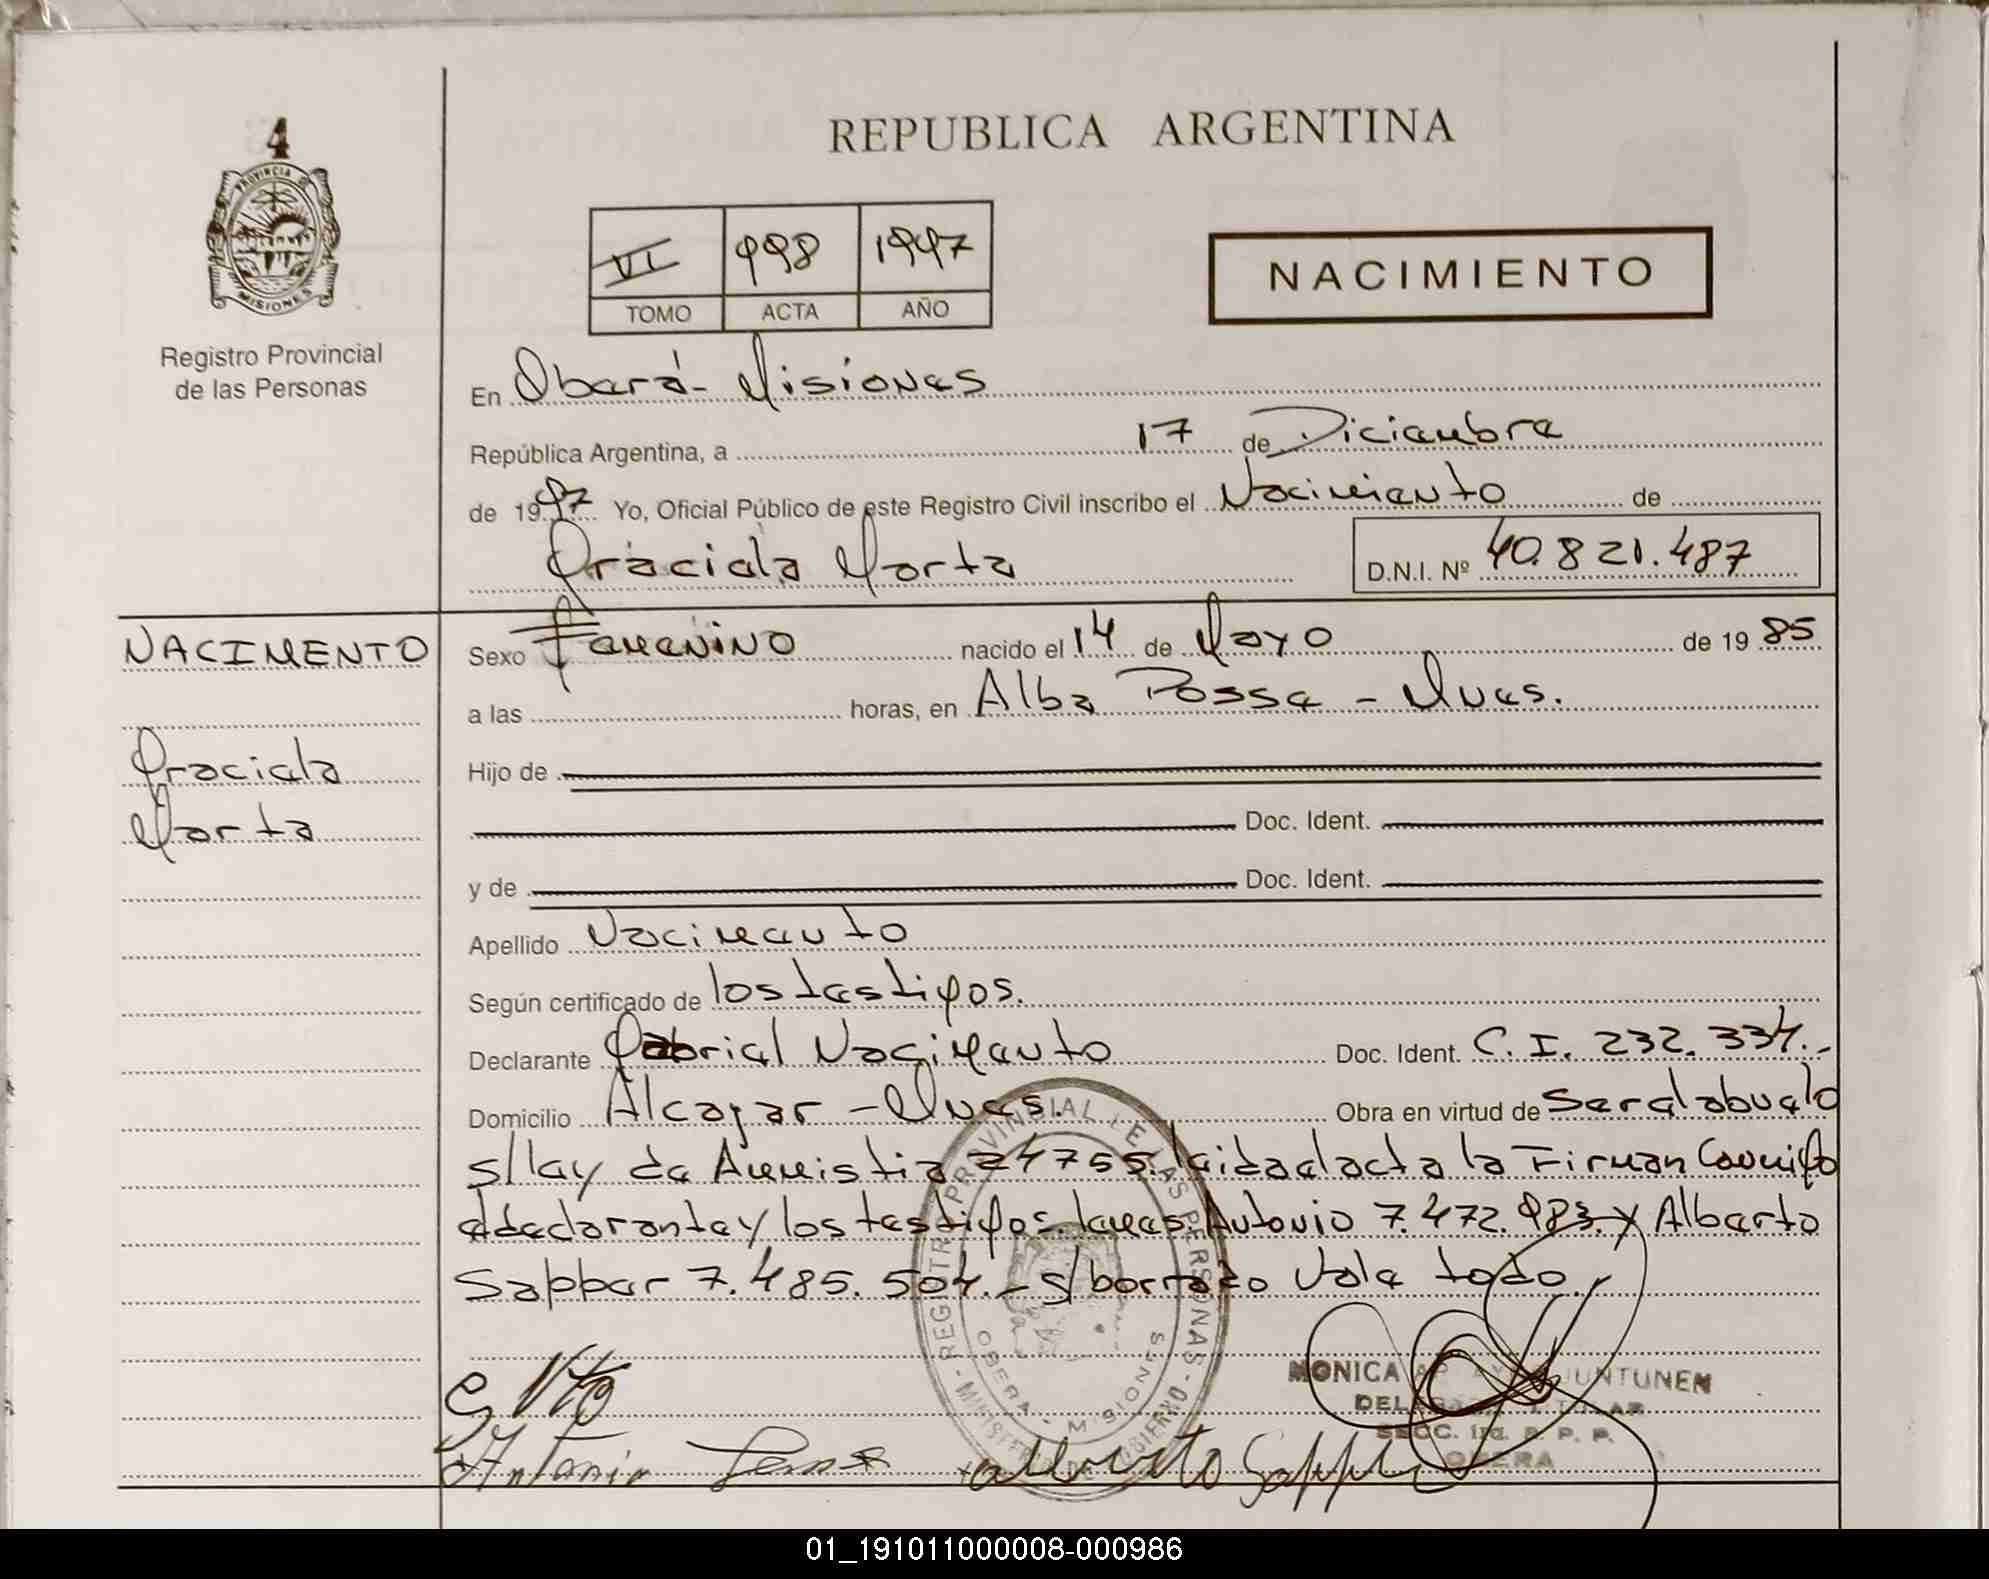 4
PROVINCIA DE
MISIONES
Registro Provincial
de las Personas
REPUBLICA ARGENTINA
VI 998 1997
TOMO ACTA AÑO
NACIMIENTO
En Oberá - Misiones
República Argentina, a 17 de Diciembre
de 1997 Yo, Oficial Público de este Registro Civil inscribo el Nacimiento de
Graciela Marta D.N.I. Nº 40.821.487
NACIMENTO
Graciela
Marta
Sexo Femenino nacido el 14 de Mayo de 1985
a las horas, en Alba Posse - Mnes.
Hijo de
Doc. Ident.
y de Doc. Ident.
Apellido Nacimento
Según certificado de los testigos.
Declarante Gabriel Nacimento Doc. Ident. C. I. 232.334.-
Domicilio Alcazar - Mnes. Obra en virtud de ser el abuelo
s/ley de Amnistia 24755. leida el acta la Firman Conmigo
el declarante y los testigos Antonio 7.472.983. y Alberto
7.485.504.- s/borrado Vale todo.
REGISTRO PROVINCIAL DE LAS PERSONAS
MINISTERIO DE GOBIERNO
OBERA - MISIONES
MONICA JUNTUNEN
DELEGADA TITULAR
SECC. 1ra. R. P. P.
OBERA
Antonio
Alberto
01_191011000008-000986